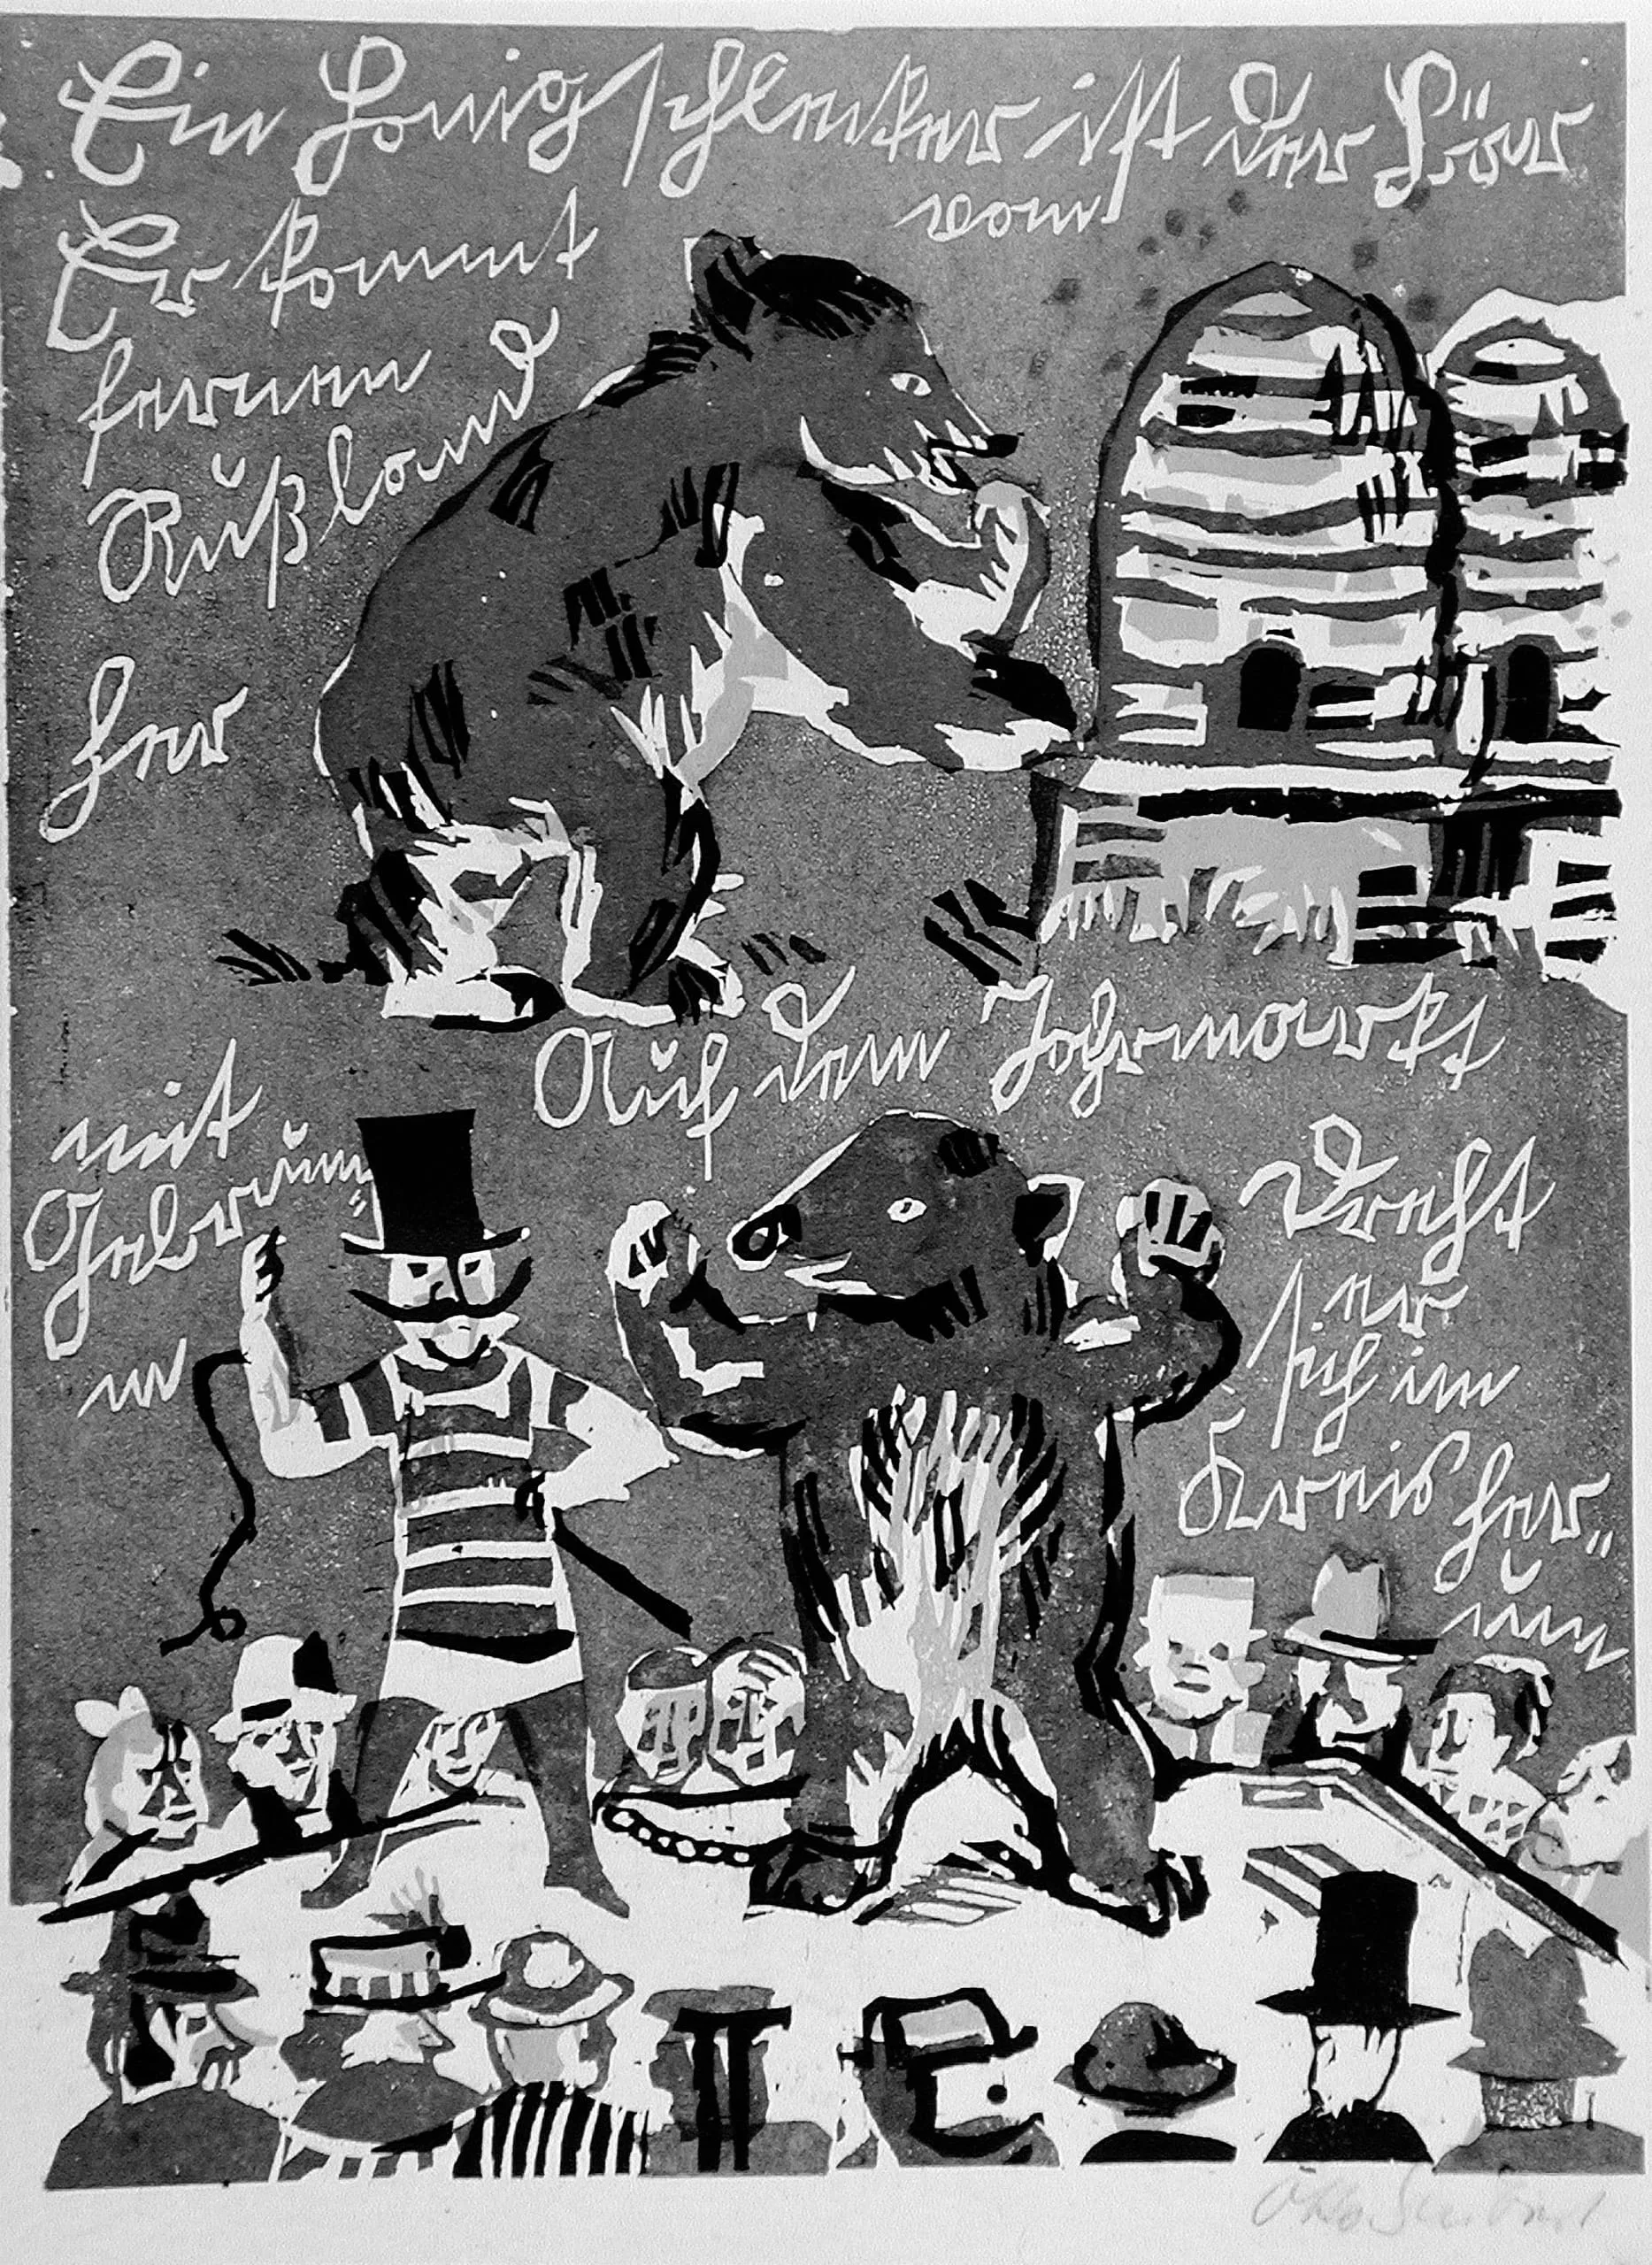 Ein Honigschlecker ist der Bär
Er kommt vom
fernen
Rußland
her
Auf dem Jahrmarkt
mit
Gebrumm
dreht
er
sich im
Kreis her-
um